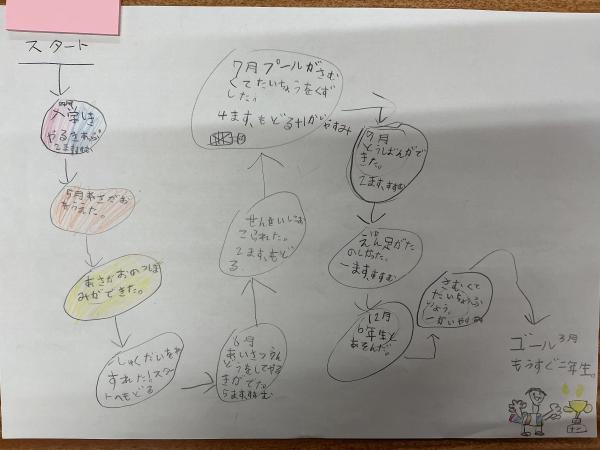 スタート
四月
入学しき
やるきあっぷ
2ますすすむ
5月あさがお
をうえた。
あさがおのつぼ
みができた。
しゅくだいをわ
すれた!スター
トへもどる
6月
あいさつうん
どうをしてやる
きがでた。
5ますすすむ
せんせいにお
こられた。
2ます、もど
る
7月プールがさむ
くてたいちょうをくず
した。
4ます、もどる
9月
とうばんがで
きた。
2ます、すすむ
えん足がた
のしかった。
一ます、すすむ
12月
6年生と
あそんだ。
さむくて
たいちょうふ
りょう。
一かいやすみ
ゴール3月
もうすぐ二年生。